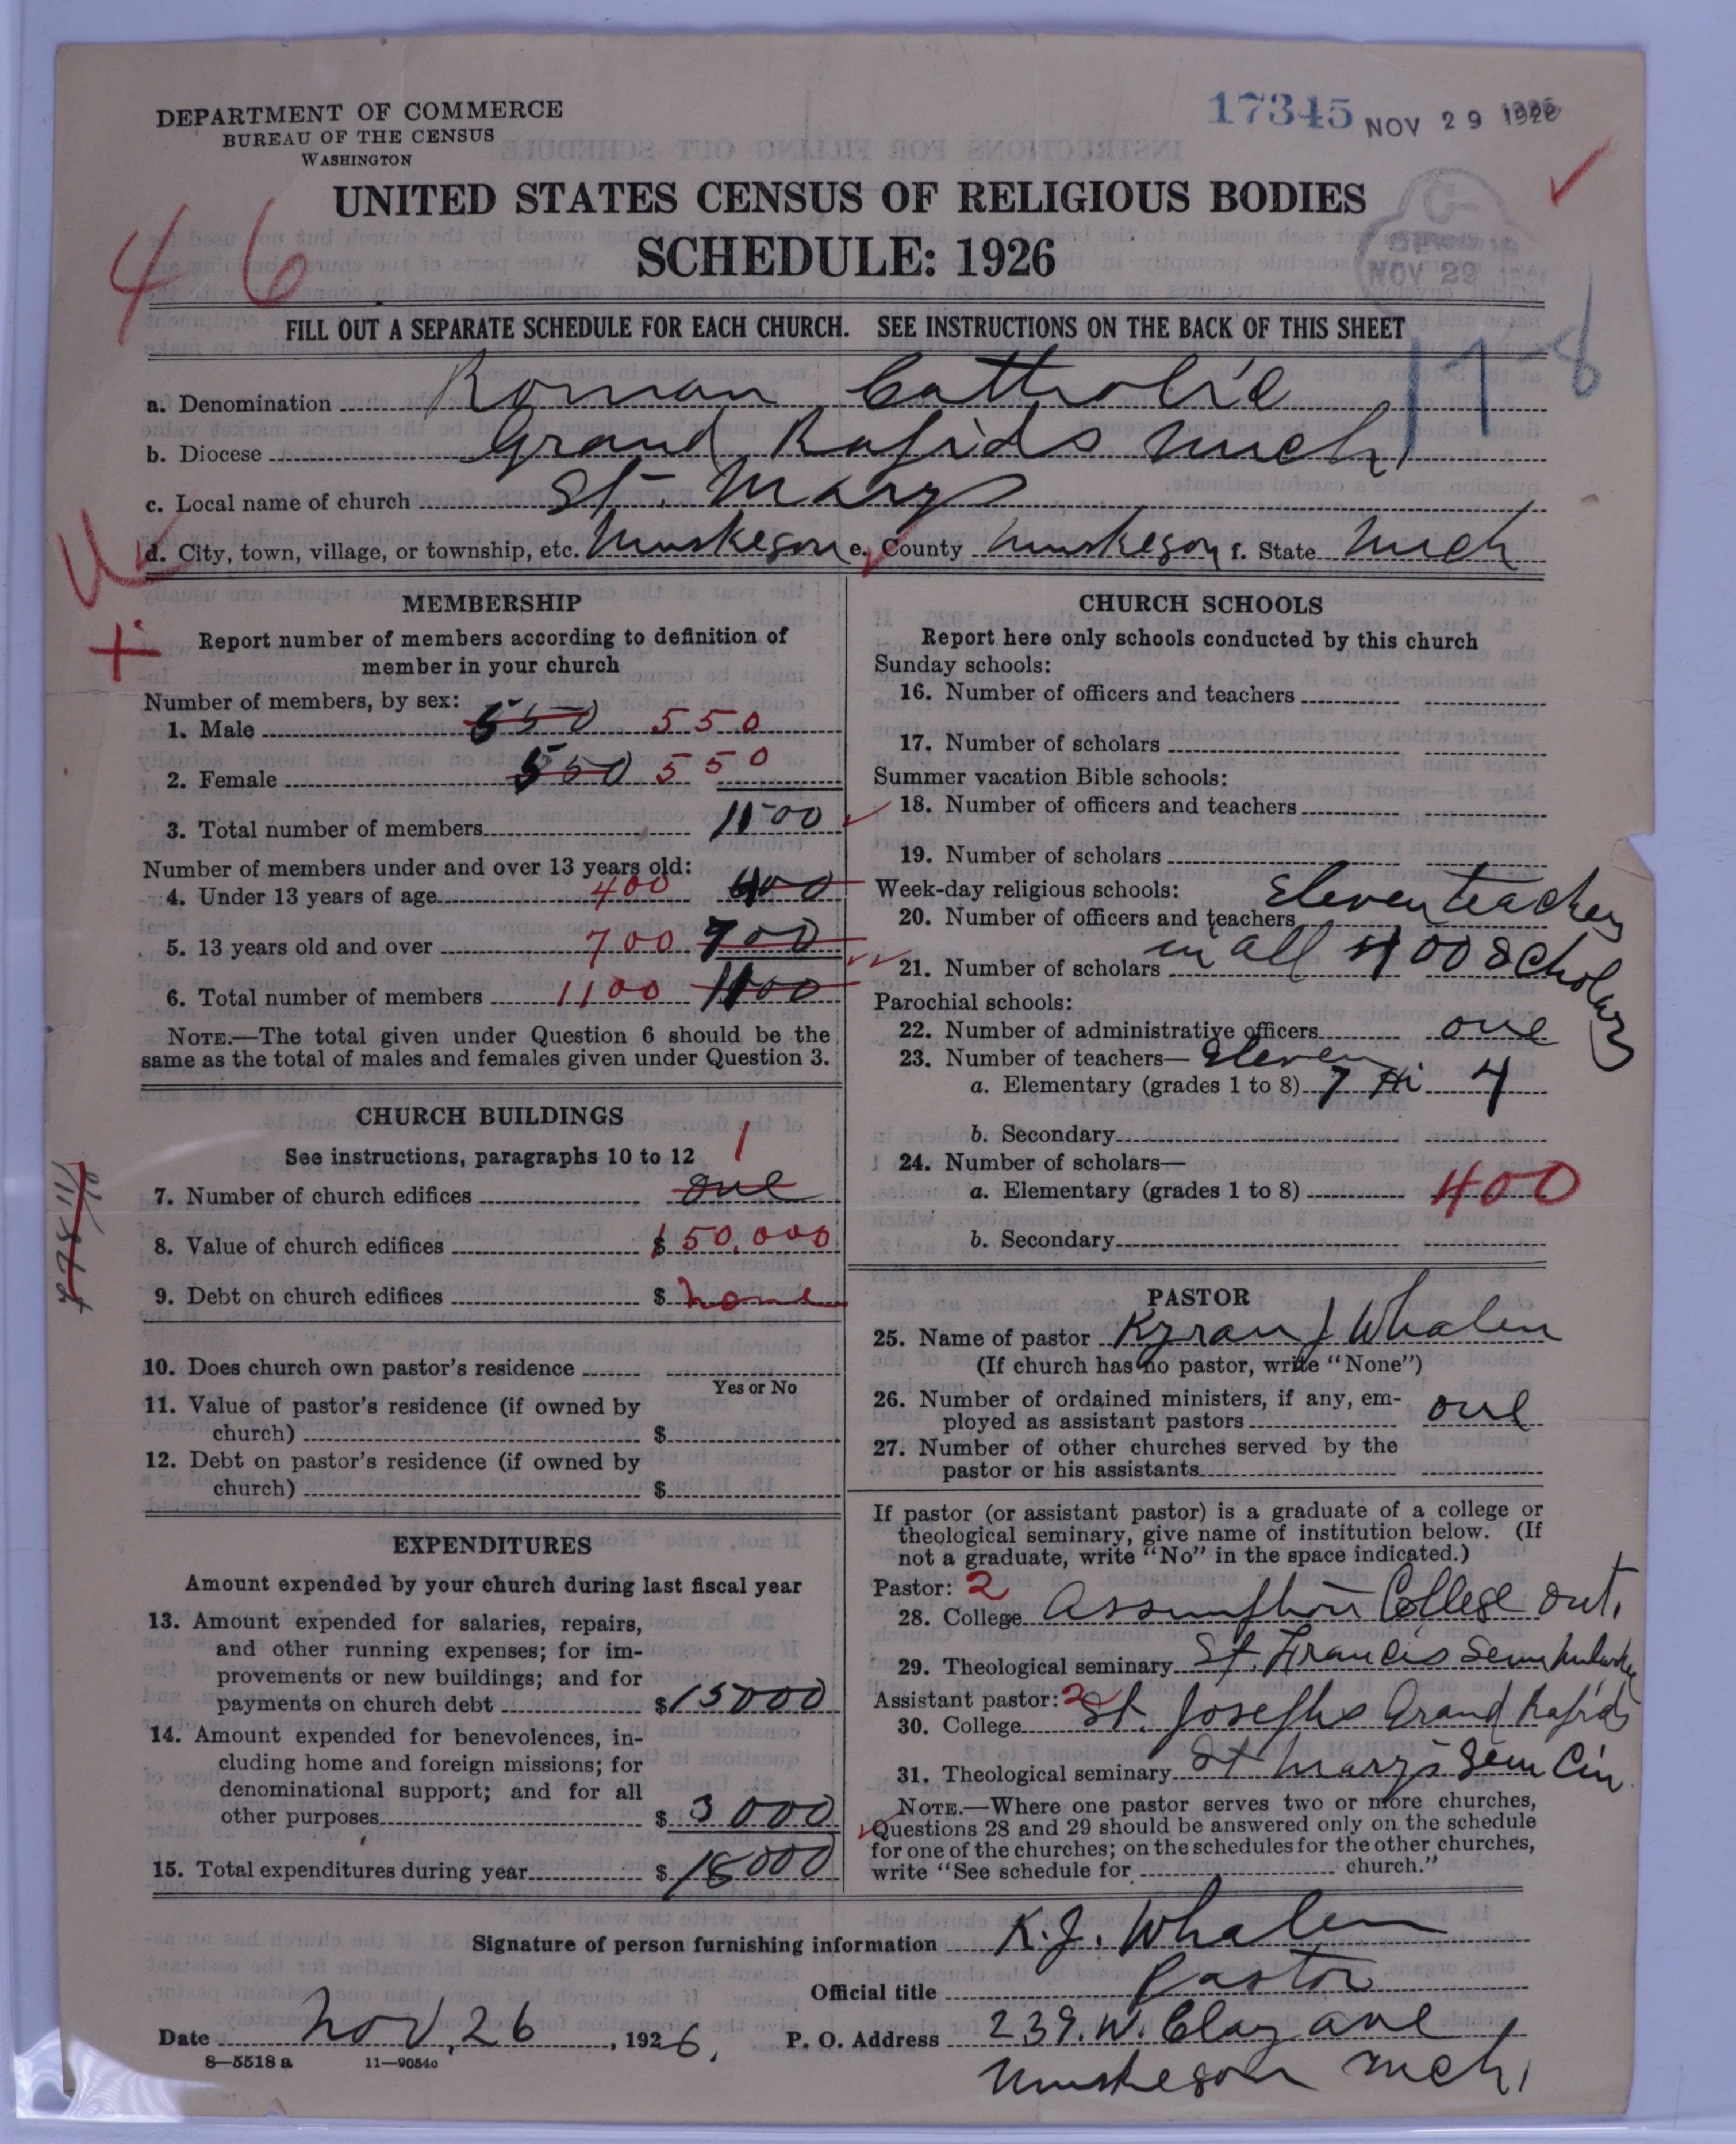 DEPARTMENT OF COMMERCE
BUREAU OF THE CENSUS
WASHINGTON
17345 NOV 29 1926
UNITED STATES CENSUS OF RELIGIOUS BODIES
SCHEDULE: 1926
NOV 29
46
FILL OUT A SEPARATE SCHEDULE FOR EACH CHURCH. SEE INSTRUCTIONS ON THE BACK OF THIS SHEET
17-8
a. Denomination Roman Catholic
b. Diocese Grand Rapids Mich
c. Local name of church St. Marys
d. City, town, village, or township, etc. Muskegon e. County Muskegon f. State Mich
MEMBERSHIP
Report number of members according to definition of
member in your church
Number of members, by sex:
1. Male 550 550
2. Female 550 550
3. Total number of members 1100
Number of members under and over 13 years old:
4. Under 13 years of age 400 400
5. 13 years old and over 700 700
6. Total number of members 1100 1100
NOTE.—The total given under Question 6 should be the
same as the total of males and females given under Question 3.
CHURCH BUILDINGS
See instructions, paragraphs 10 to 12
1
7. Number of church edifices one
8. Value of church edifices $ 50,000
9. Debt on church edifices $ none
10. Does church own pastor's residence
Yes or No
11. Value of pastor's residence (if owned by
church) $
12. Debt on pastor's residence (if owned by
church) $
EXPENDITURES
Amount expended by your church during last fiscal year
13. Amount expended for salaries, repairs,
and other running expenses; for im-
provements or new buildings; and for
payments on church debt $ 15000
14. Amount expended for benevolences, in-
cluding home and foreign missions; for
denominational support; and for all
other purposes $ 3000
15. Total expenditures during year $ 18000
CHURCH SCHOOLS
Report here only schools conducted by this church
Sunday schools:
16. Number of officers and teachers
17. Number of scholars
Summer vacation Bible schools:
18. Number of officers and teachers
19. Number of scholars
Week-day religious schools: Eleven teachers
20. Number of officers and teachers
21. Number of scholars in all 400 scholars
Parochial schools:
22. Number of administrative officers one
23. Number of teachers— Eleven
a. Elementary (grades 1 to 8) 7 Hi 4
b. Secondary
24. Number of scholars—
a. Elementary (grades 1 to 8) 400
b. Secondary
PASTOR
25. Name of pastor Kyran J Whalen
(If church has no pastor, write "None")
26. Number of ordained ministers, if any, em-
ployed as assistant pastors one
27. Number of other churches served by the
pastor or his assistants
If pastor (or assistant pastor) is a graduate of a college or
theological seminary, give name of institution below. (If
not a graduate, write "No" in the space indicated.)
Pastor: 2
28. College Assumption College Ont.
29. Theological seminary St. Francis Sem
Assistant pastor: 2
30. College St. Josephs Grand Rapids
31. Theological seminary St Marys Sem Cin
NOTE.—Where one pastor serves two or more churches,
Questions 28 and 29 should be answered only on the schedule
for one of the churches; on the schedules for the other churches,
write "See schedule for church."
Signature of person furnishing information K. J. Whalen
Official title Pastor
Date Nov, 26, 1926. P. O. Address 239. W. Clay ave
8—5518 a 11—9054c
Muskegon Mich,